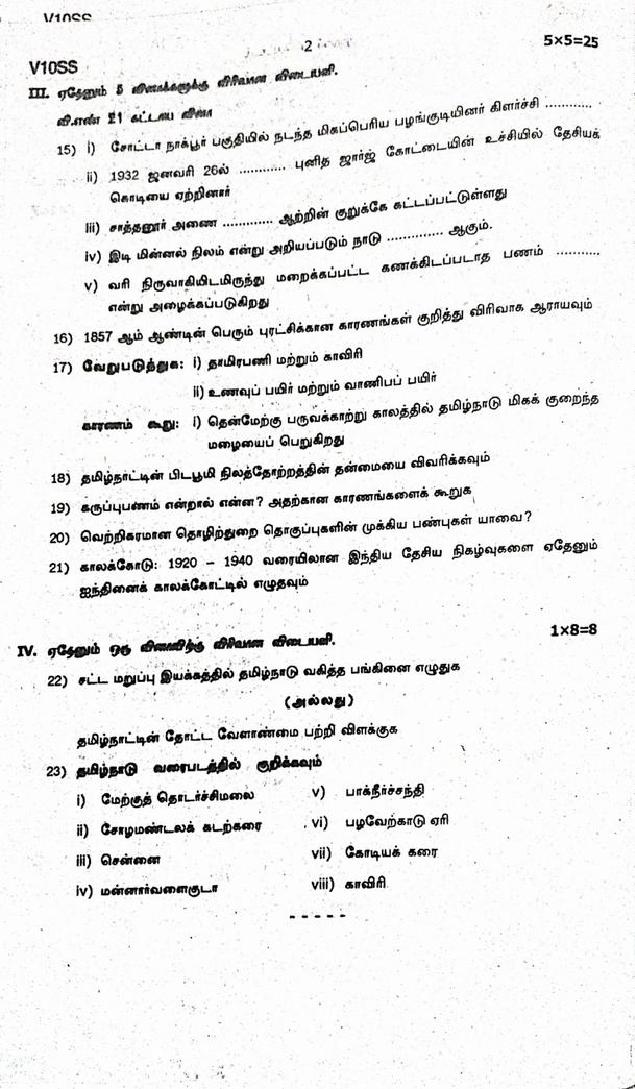 V10SS
2
5×5=25
V10SS
III. ஏதேனும் 5 வினாக்களுக்கு விரிவான விடையளி.
வி.எண் 21 கட்டாய வினா
15) i) சோட்டா நாக்பூர் பகுதியில் நடந்த மிகப்பெரிய பழங்குடியினர் கிளர்ச்சி ............ .
ii) 1932 ஜனவரி 26ல் ............ புனித ஜார்ஜ் கோட்டையின் உச்சியில் தேசியக்
கொடியை ஏற்றினார்
iii) சாத்தனூர் அணை ............. ஆற்றின் குறுக்கே கட்டப்பட்டுள்ளது
iv) இடி மின்னல் நிலம் என்று அறியப்படும் நாடு .............. ஆகும்.
v) வரி நிருவாகியிடமிருந்து மறைக்கப்பட்ட கணக்கிடப்படாத பணம் ...........
என்று அழைக்கப்படுகிறது
16) 1857 ஆம் ஆண்டின் பெரும் புரட்சிக்கான காரணங்கள் குறித்து விரிவாக ஆராயவும்
17) வேறுபடுத்துக: i) தாமிரபணி மற்றும் காவிரி
ii) உணவுப் பயிர் மற்றும் வாணிபப் பயிர்
காரணம் கூறு: i) தென்மேற்கு பருவக்காற்று காலத்தில் தமிழ்நாடு மிகக் குறைந்த
மழையைப் பெறுகிறது
18) தமிழ்நாட்டின் பிடபூமி நிலத்தோற்றத்தின் தன்மையை விவரிக்கவும்
19) கருப்புபணம் என்றால் என்ன? அதற்கான காரணங்களைக் கூறுக
20) வெற்றிகரமான தொழிற்துறை தொகுப்புகளின் முக்கிய பண்புகள் யாவை?
21) காலக்கோடு: 1920 – 1940 வரையிலான இந்திய தேசிய நிகழ்வுகளை ஏதேனும்
ஐந்தினைக் காலக்கோட்டில் எழுதவும்
IV. ஏதேனும் ஒரு வினாவிற்கு விரிவான விடையளி.
1×8=8
22) சட்ட மறுப்பு இயக்கத்தில் தமிழ்நாடு வகித்த பங்கினை எழுதுக
(அல்லது)
தமிழ்நாட்டின் தோட்ட வேளாண்மை பற்றி விளக்குக
23) தமிழ்நாடு வரைபடத்தில் குறிக்கவும்
i) மேற்குத் தொடர்ச்சிமலை
v) பாக்நீர்ச்சந்தி
ii) சோழமண்டலக் கடற்கரை
vi) பழவேற்காடு ஏரி
iii) சென்னை
vii) கோடியக் கரை
iv) மன்னார்வளைகுடா
viii) காவிரி
-----